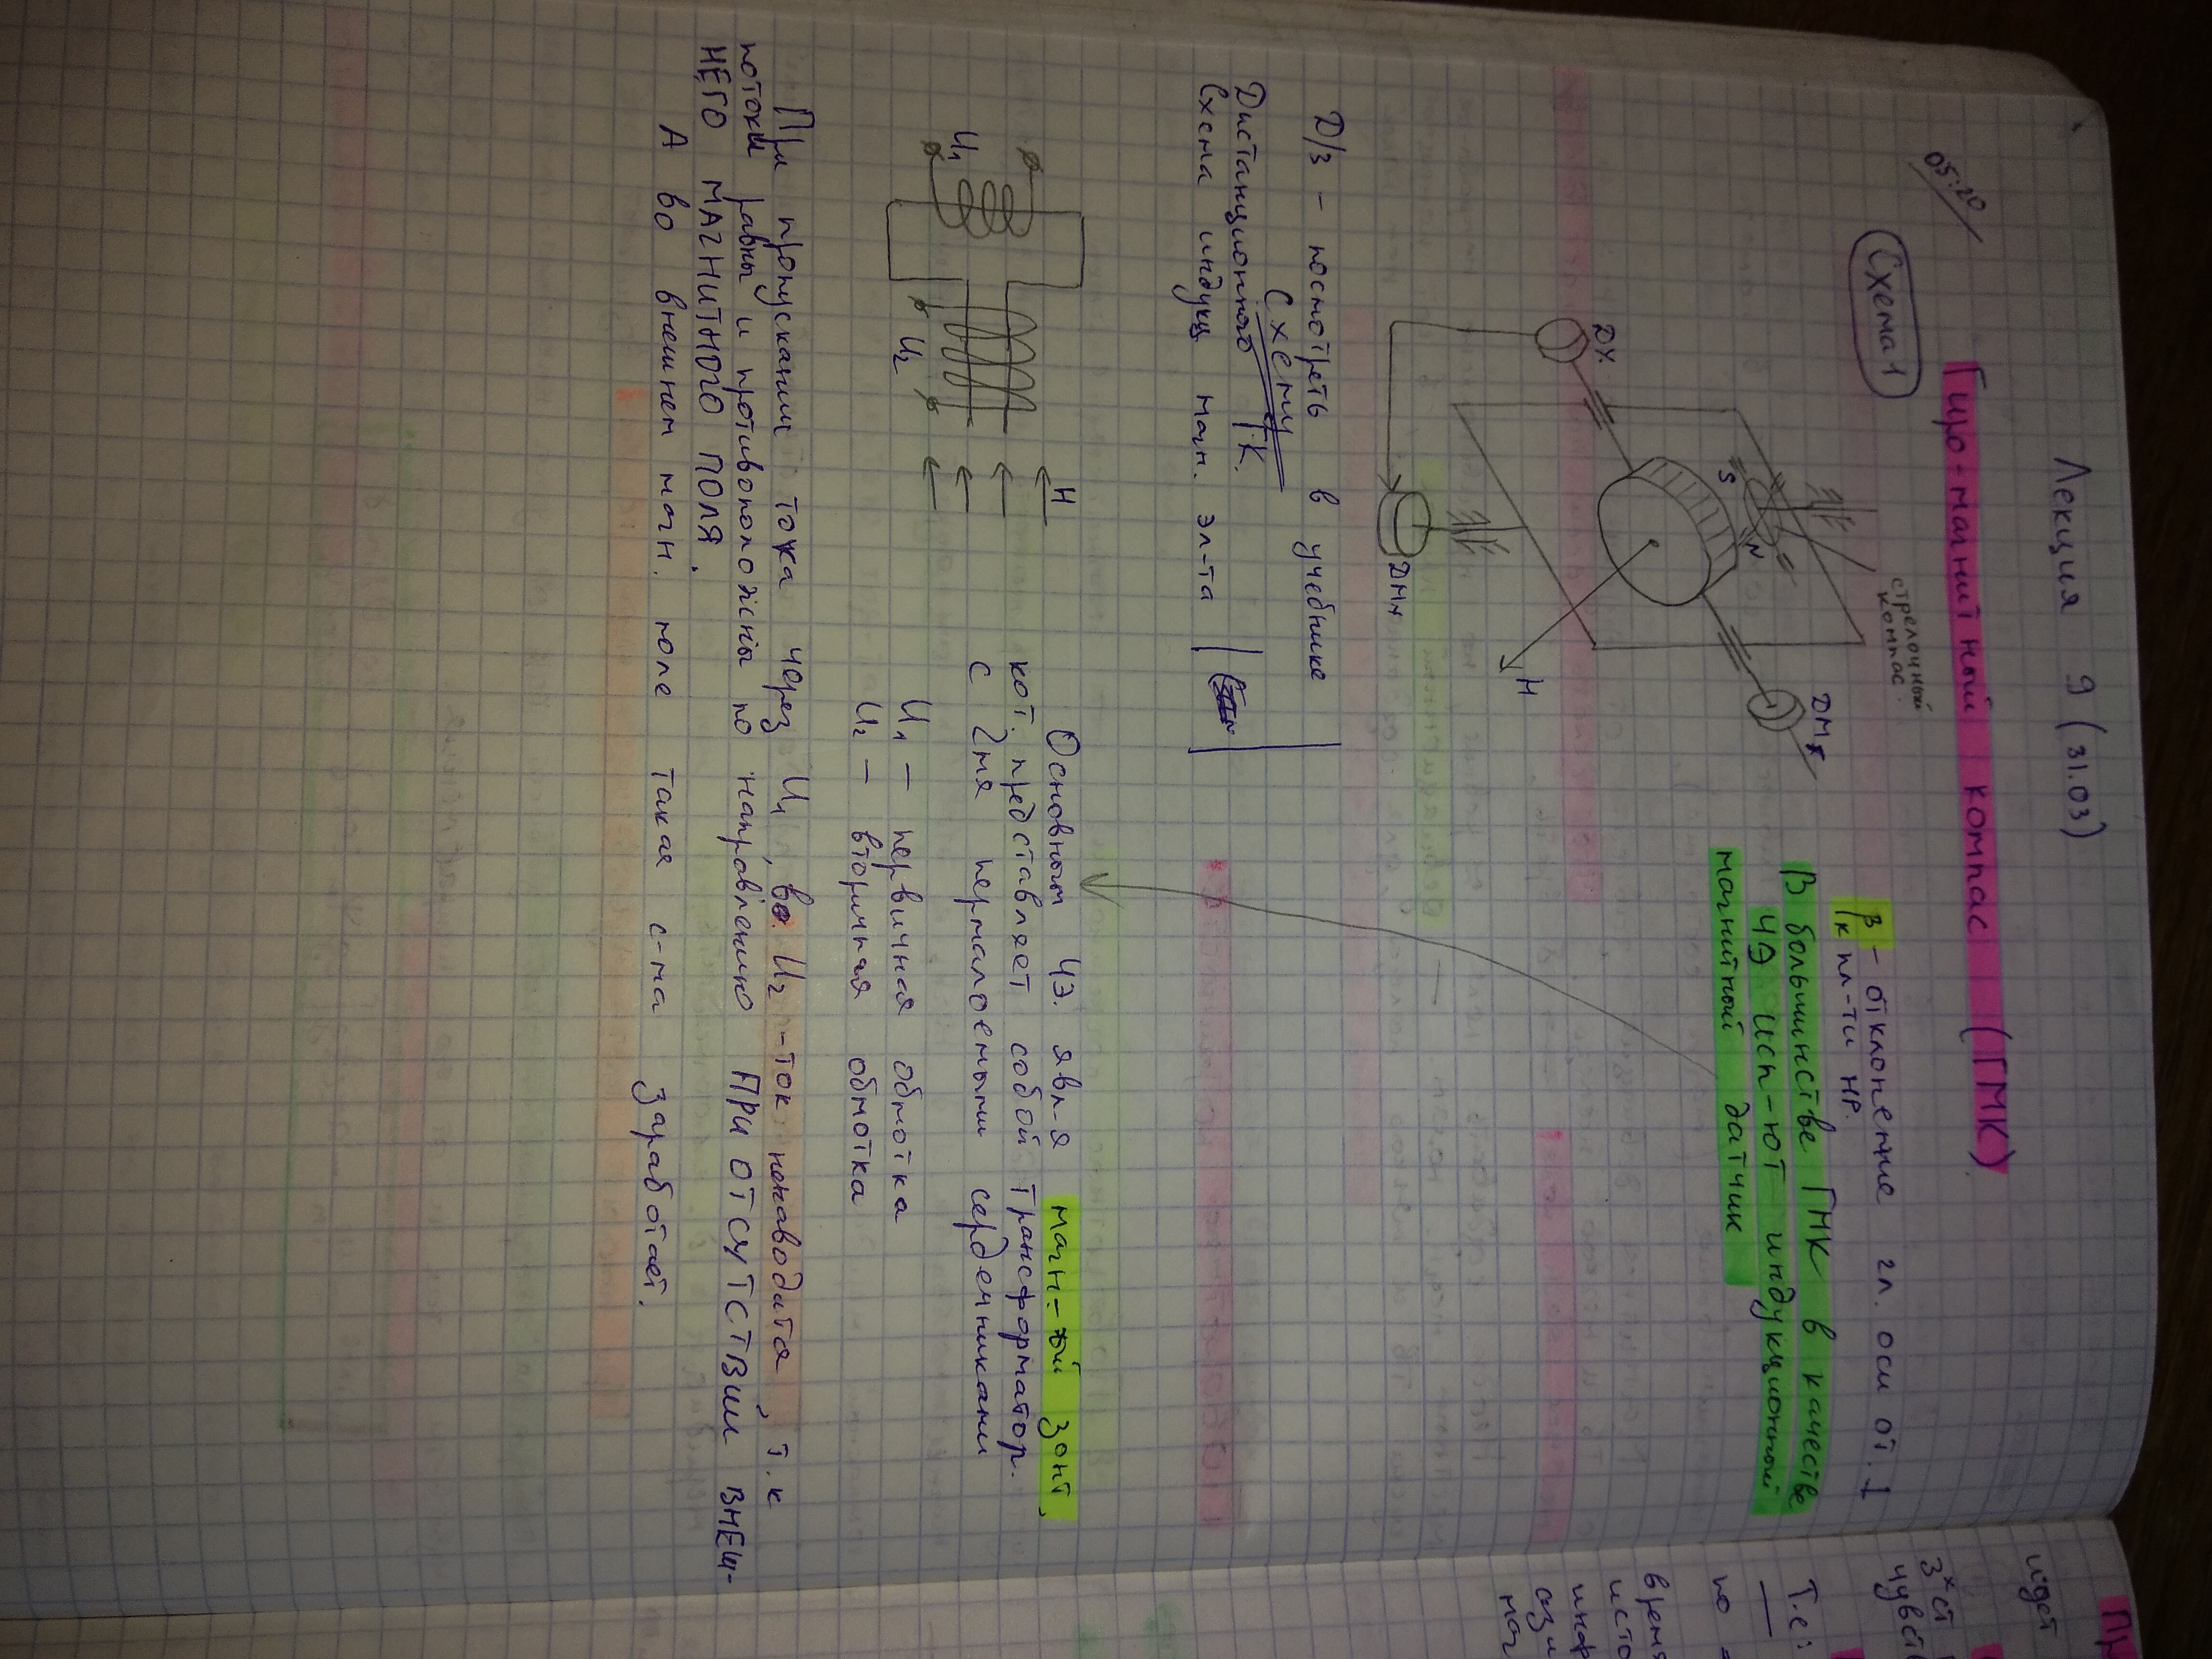 Лекция 9 (31.03)
Гиро-магнитный компас (ГМК)
05:20
Схема 1
стрелочный
компас
ДМх
ДУ
S
N
H
ДМн
β - отклонение гл. оси от ⊥
к пл-ти НР.
В большинстве ГМК в качестве
ЧЭ исп-ют индукционный
магнитный датчик
Д/з - посмотреть в учебнике
Схему
Дистанционного ГК.
Схема индукц магн. эл-та
H
U₁
U₂
Основным ЧЭ. явл-я магн-ый зонт,
кот. представляет собой трансформатор.
с 2мя пермалоемыми сердечниками
U₁ - первичная обмотка
U₂ - вторичная обмотка
При пропускании тока через U₁, во U₂ - ток ненаводится, т.к
потоки равны и противоположны по направлению ПРИ ОТСУТСТВИИ ВНЕШ-
НЕГО МАГНИТНОГО ПОЛЯ.
А во внешнем магн. поле такая с-ма заработает.
идет
3х ст
чувст
Т.е:
по
время
исто
инф
ази
маг